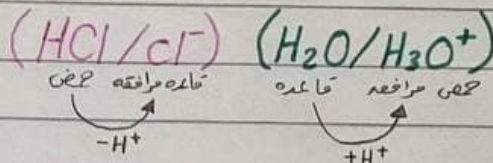 (HCl/Cl⁻) (H₂O/H₃O⁺)
حمض قاعدة مرافقة قاعدة حمض مرافقة
-H⁺ +H⁺